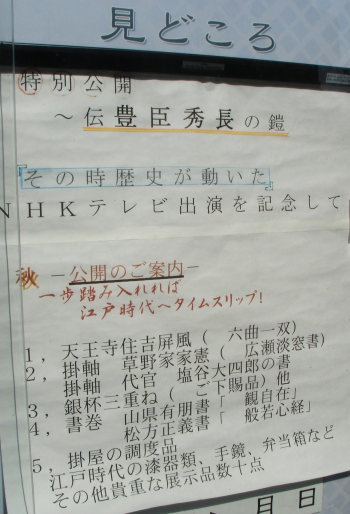 見どころ
特別公開
～伝豊臣秀長の鎧
「その時歴史が動いた」
NHKテレビ出演を記念して
秋－公開のご案内－
一歩踏み入れれば
江戸時代へタイムスリップ!
1, 天王寺住吉屏風( 六曲一双)
2, 掛軸 草野家家憲(広瀬淡窓書)
掛軸 代官 塩谷大四郎の書
3, 銀杯三重ね(ご下賜品)他
4, 書巻 山県有朋書「観自在」
松方正義書「般若心経」
5, 掛屋の調度品
江戸時代の漆器類、手鏡、弁当箱など
その他貴重な展示品数十点
月 日